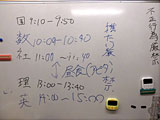 国 9:10-9:50
数 10:00-10:40
社 11:00-11:40
昼食
理 13:00-13:40
英 14:00-15:00
不正行為